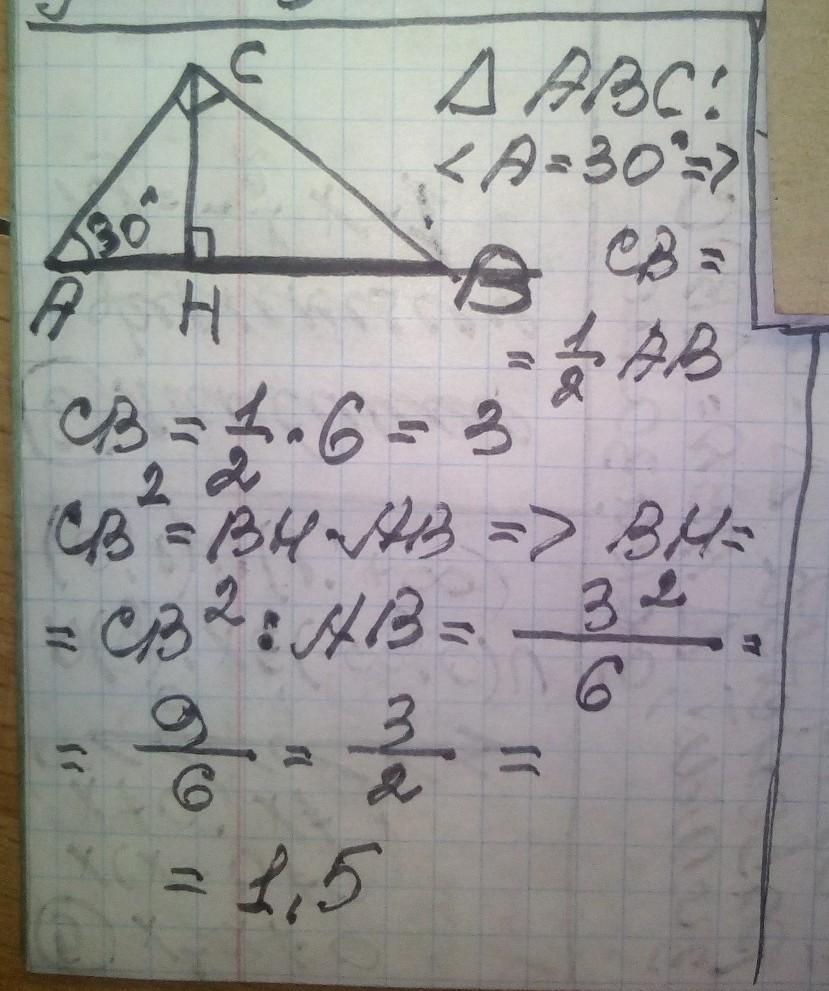 C
30°
A H B
Δ ABC:
<A = 30° =>
CB =
= 1/2 AB
CB = 1/2 · 6 = 3
CB² = BH · AB => BH =
= CB² : AB = 3²/6 =
= 9/6 = 3/2 =
= 1,5